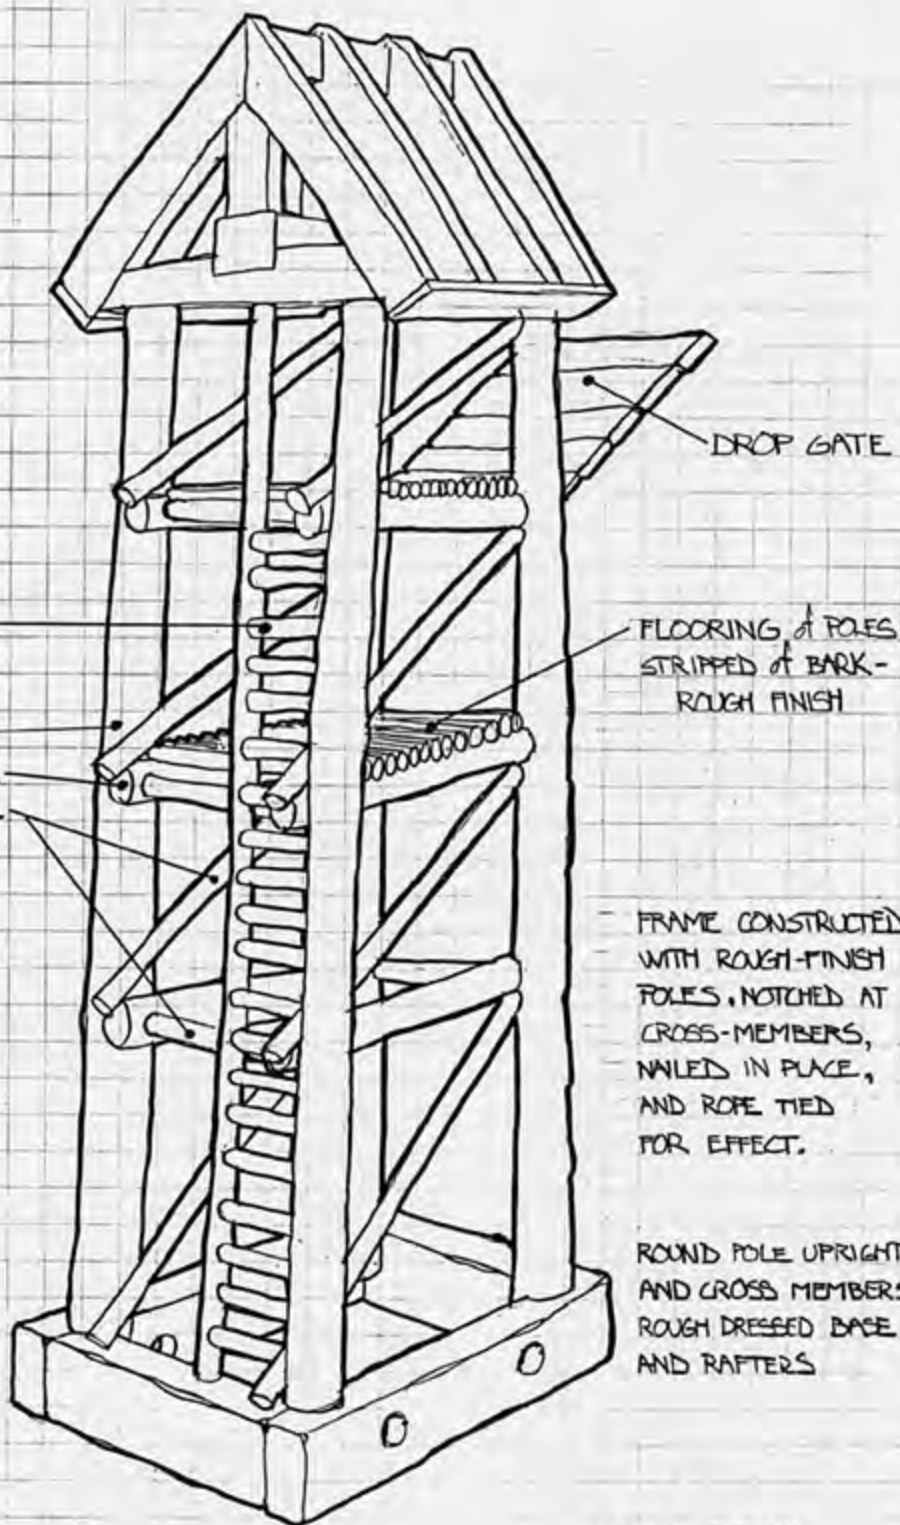 DROP GATE
FLOORING of POLES
STRIPPED of BARK-
ROUGH FINISH
FRAME CONSTRUCTED
WITH ROUGH-FINISH
POLES, NOTCHED AT
CROSS-MEMBERS,
NAILED IN PLACE,
AND ROPE TIED
FOR EFFECT.
ROUND POLE UPRIGHT
AND CROSS MEMBERS
ROUGH DRESSED BASE
AND RAFTERS